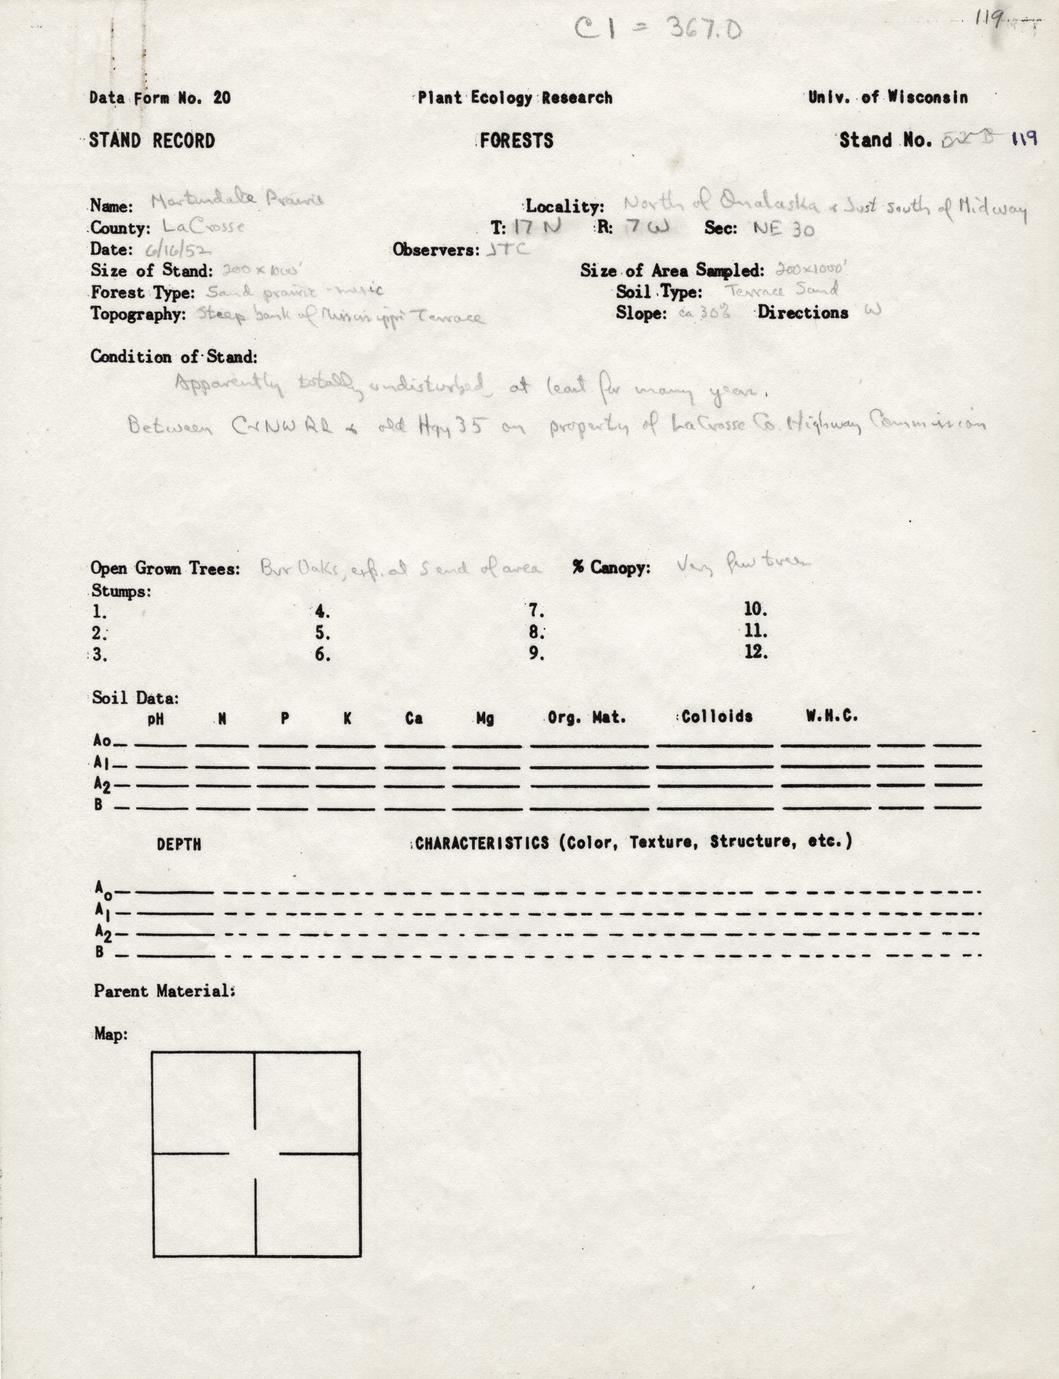 119
CI = 367.0
Data Form No. 20 Plant Ecology Research Univ. of Wisconsin
STAND RECORD FORESTS Stand No. 119
Name: Martindale Prairie Locality: North of Onalaska & Just south of Midway
County: LaCrosse T: 17 N R: 7 W Sec: NE 30
Date: 6/16/52 Observers: JTC
Size of Stand: 200 x 1000' Size of Area Sampled: 200x1000'
Forest Type: Sand prairie - mesic Soil Type: Terrace Sand
Topography: Steep bank of Mississippi Terrace Slope: ca 30% Directions W
Condition of Stand:
Apparently totally undisturbed, at least for many years.
Between C&NW RR & old Hgy 35 on property of LaCrosse Co. Highway Commission
Open Grown Trees: Bur Oaks, esp. at S end of area % Canopy: Very few trees
Stumps:
1. 4. 7. 10.
2. 5. 8. 11.
3. 6. 9. 12.
Soil Data:
pH N P K Ca Mg Org. Mat. Colloids W.H.C.
Ao
A1
A2
B
DEPTH CHARACTERISTICS (Color, Texture, Structure, etc.)
Ao
A1
A2
B
Parent Material:
Map: